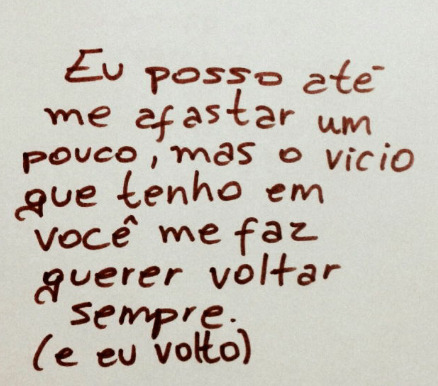 Eu posso até
me afastar um
pouco, mas o vicio
que tenho em
você me faz
querer voltar
sempre.
(e eu volto)